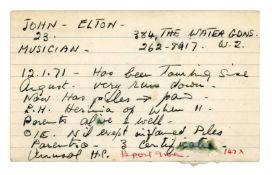 JOHN - ELTON -
23. 384, THE WATER GDNS.
MUSICIAN - 262-8917. W.2.
12.1.71 - Has been Touring Since
August. very run down -
Now Has piles → pain
P.H. Hernia op when 11
Parents alive & well.
O/E. Nil except inflamed Piles
3 Certificates
Anusol H.C. Report given